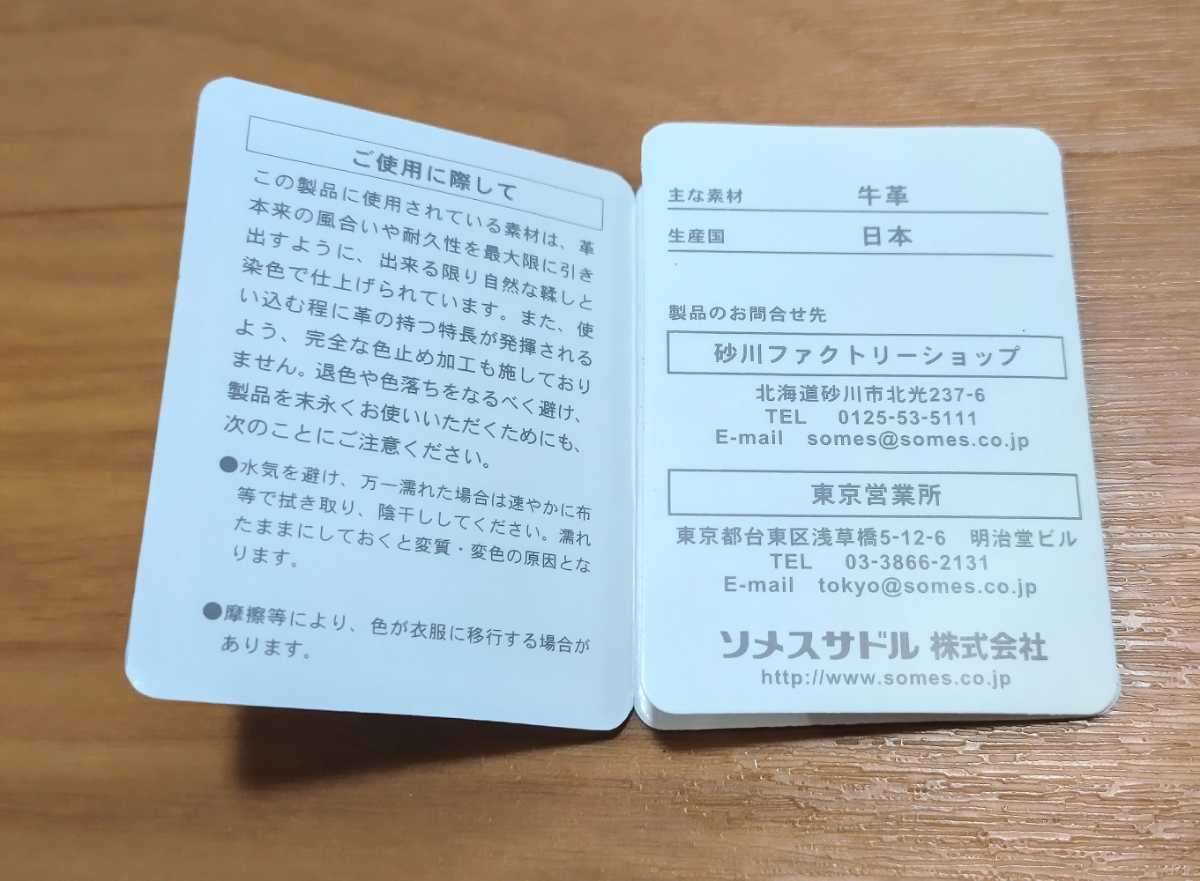 ご使用に際して
この製品に使用されている素材は、革
本来の風合いや耐久性を最大限に引き
出すように、出来る限り自然な鞣しと
染色で仕上げられています。また、使
い込む程に革の持つ特長が発揮される
よう、完全な色止め加工も施しており
ません。退色や色落ちをなるべく避け、
製品を末永くお使いいただくためにも、
次のことにご注意ください。
●水気を避け、万一濡れた場合は速やかに布
等で拭き取り、陰干ししてください。濡れ
たままにしておくと変質・変色の原因とな
ります。
●摩擦等により、色が衣服に移行する場合が
あります。
主な素材 牛革
生産国 日本
製品のお問合せ先
砂川ファクトリーショップ
北海道砂川市北光237-6
TEL 0125-53-5111
E-mail somes@somes.co.jp
東京営業所
東京都台東区浅草橋5-12-6 明治堂ビル
TEL 03-3866-2131
E-mail tokyo@somes.co.jp
ソメスサドル 株式会社
http://www.somes.co.jp